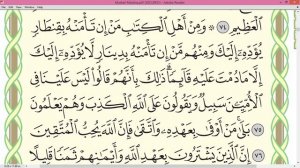 ٱلۡعَظِيمِ ٧٤ ۞ وَمِنۡ أَهۡلِ ٱلۡكِتَٰبِ مَنۡ إِن تَأۡمَنۡهُ بِقِنطَارٖ
يُؤَدِّهِۦٓ إِلَيۡكَ وَمِنۡهُم مَّنۡ إِن تَأۡمَنۡهُ بِدِينَارٖ لَّا يُؤَدِّهِۦٓ إِلَيۡكَ
إِلَّا مَا دُمۡتَ عَلَيۡهِ قَآئِمٗاۗ ذَٰلِكَ بِأَنَّهُمۡ قَالُواْ لَيۡسَ عَلَيۡنَا فِي
ٱلۡأُمِّيِّـۧنَ سَبِيلٞ وَيَقُولُونَ عَلَى ٱللَّهِ ٱلۡكَذِبَ وَهُمۡ يَعۡلَمُونَ
٧٥ بَلَىٰۚ مَنۡ أَوۡفَىٰ بِعَهۡدِهِۦ وَٱتَّقَىٰ فَإِنَّ ٱللَّهَ يُحِبُّ ٱلۡمُتَّقِينَ
٧٦ إِنَّ ٱلَّذِينَ يَشۡتَرُونَ بِعَهۡدِ ٱللَّهِ وَأَيۡمَٰنِهِمۡ ثَمَنٗا قَلِيلًا